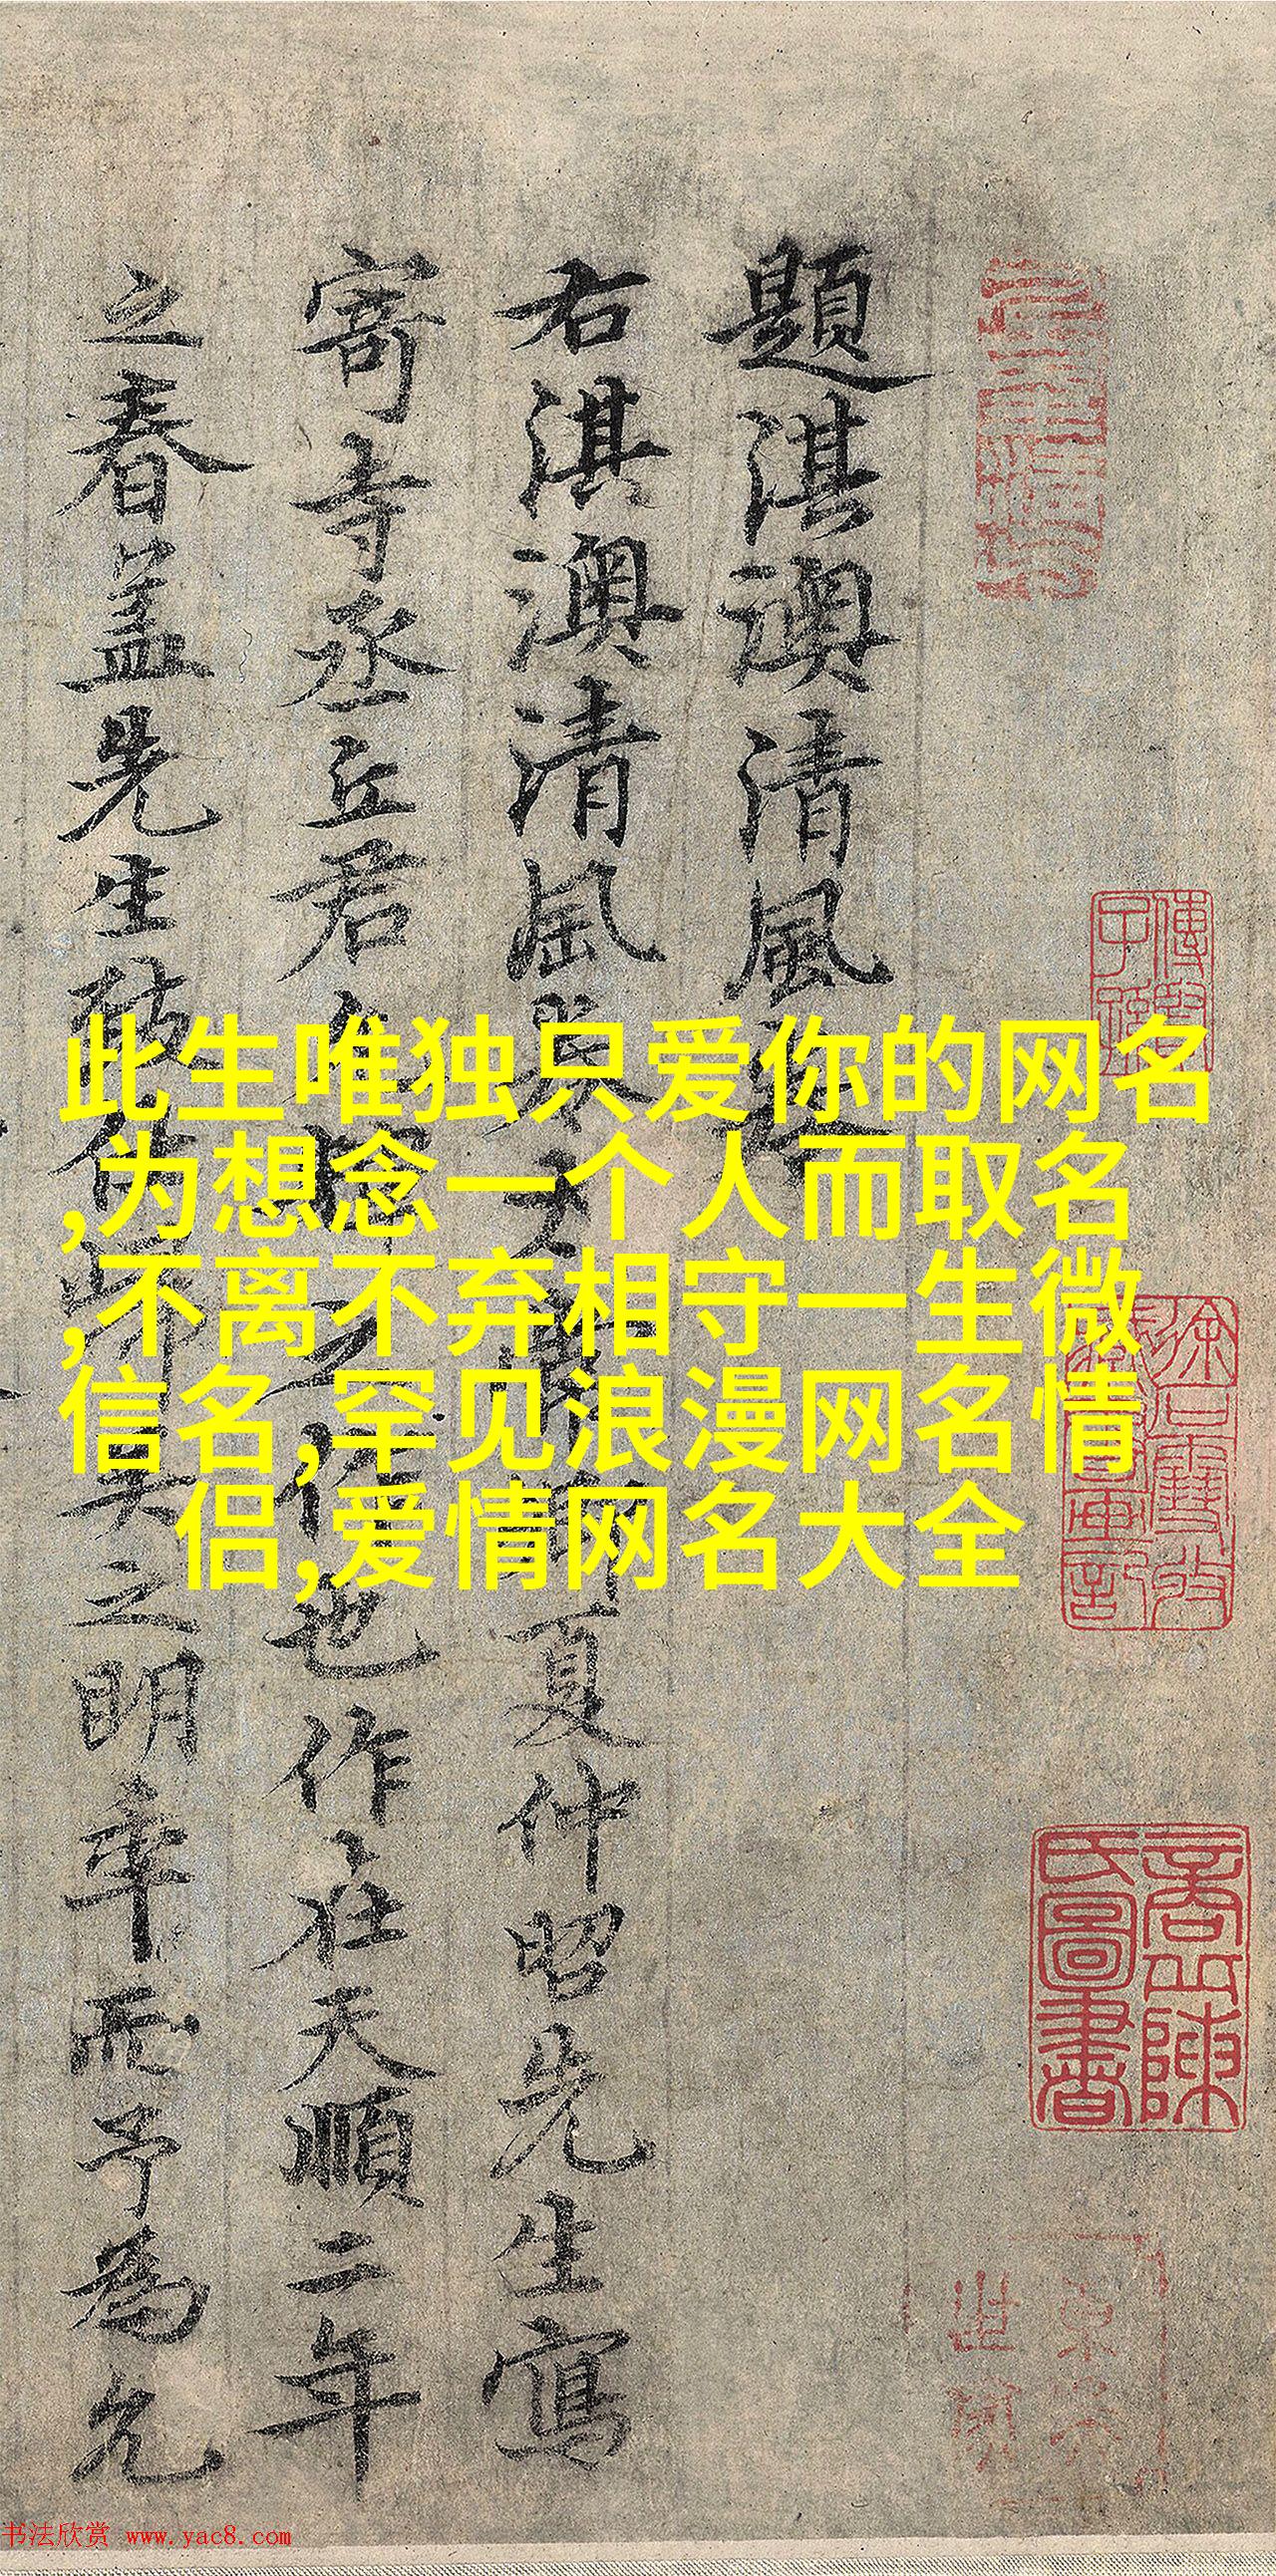 題淇澳清風
右淇澳清風太夏仲昭先生寫
寄寺丞丘君之作也作在天順二年
之春蓋先生致仕歸吳之明年而予為允
此生唯独只爱你的网名
,为想念一个人而取名
,不离不弃相守一生微
信名,罕见浪漫网名情
侣,爱情网名大全
书法欣赏 www.yac8.com